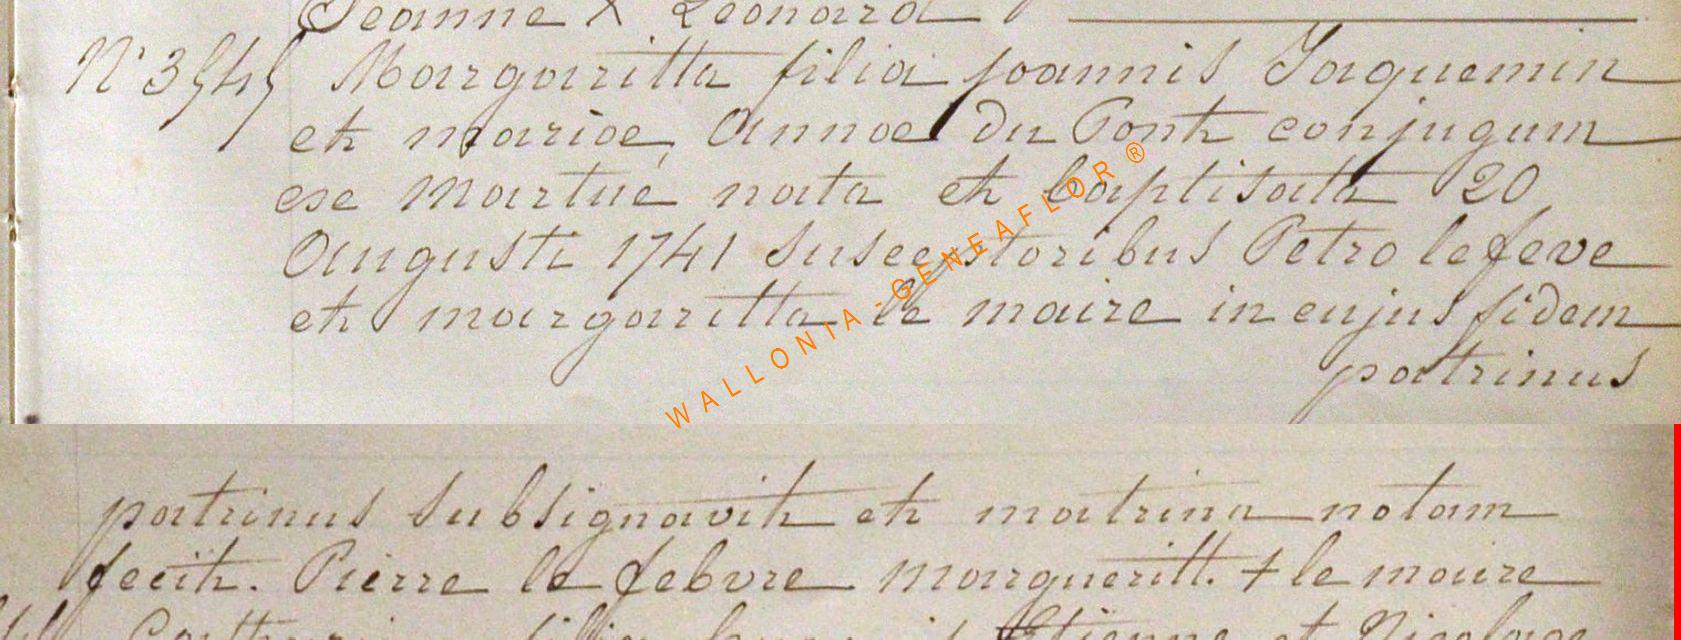 Jeanne X Leonard
N° 3545 Margaritta filia joannis Jaquemin
et mariae, Annae du Pont conjugum
ese Martue nata et baptisata 20
Augusti 1741 susceptoribus Petro lefeve
et margaritta le maire in cujus fidem
patrinus
WALLONIA-GENEAFLOR ®
patrinus subsignavit et matrina notam
fecit. Pierre le febvre margueritt. + le maire
filia Etienne et Nicolage